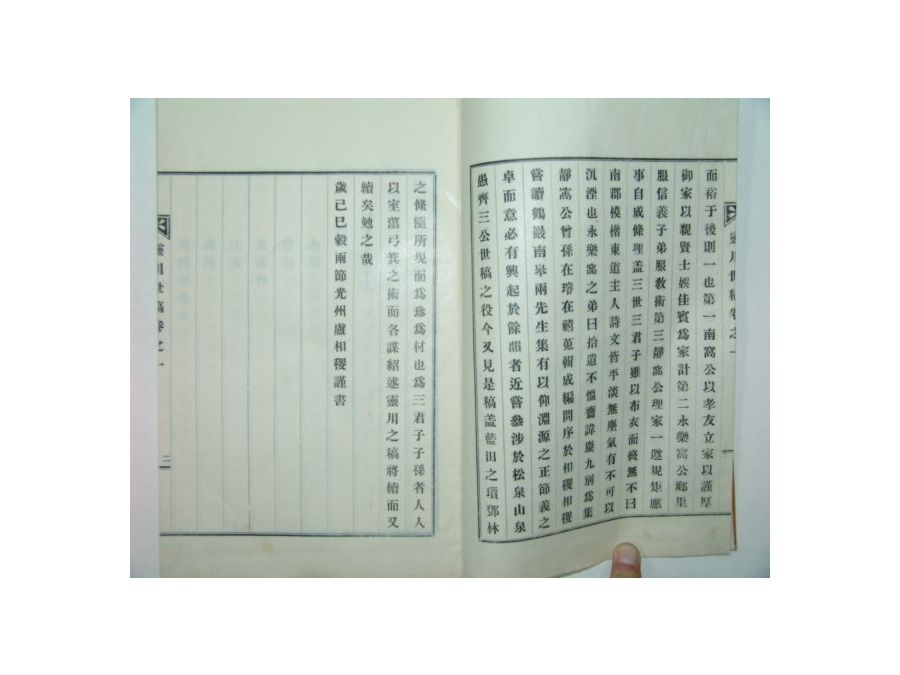 而裕于後則一也第一南窩公以孝友立家以謹厚
御家以親賢士娛佳賓爲家計第二永樂窩公鄉里
服信義子弟服敎術第三靜窩公理家一遵規矩應
事自成條理盖三世三君子雖以布衣而終無不曰
南郡模楷東道主人詩文皆平淡無塵氣有不可以
沉湮也永樂窩之弟曰拾遺不慍齋諱慶九別爲集
靜窩公曾孫在璿在禧蒐輯成編問序於相稷相稷
嘗讀鶴巖南皐兩先生集有以仰淵源之正節義之
卓而意必有興起於餘韻者近嘗叅涉於松泉山泉
愚齊三公世稿之役今又見是稿盖藍田之瓊鄧林
靈川世稿卷之一
之條隨所現而爲珍爲材也爲三君子子孫者人人
以室菑弓箕之術而各謀紹述靈川之稿將續而又
續矣勉之哉
歲己巳穀雨節光州盧相稷謹書
靈川世稿卷之一
二